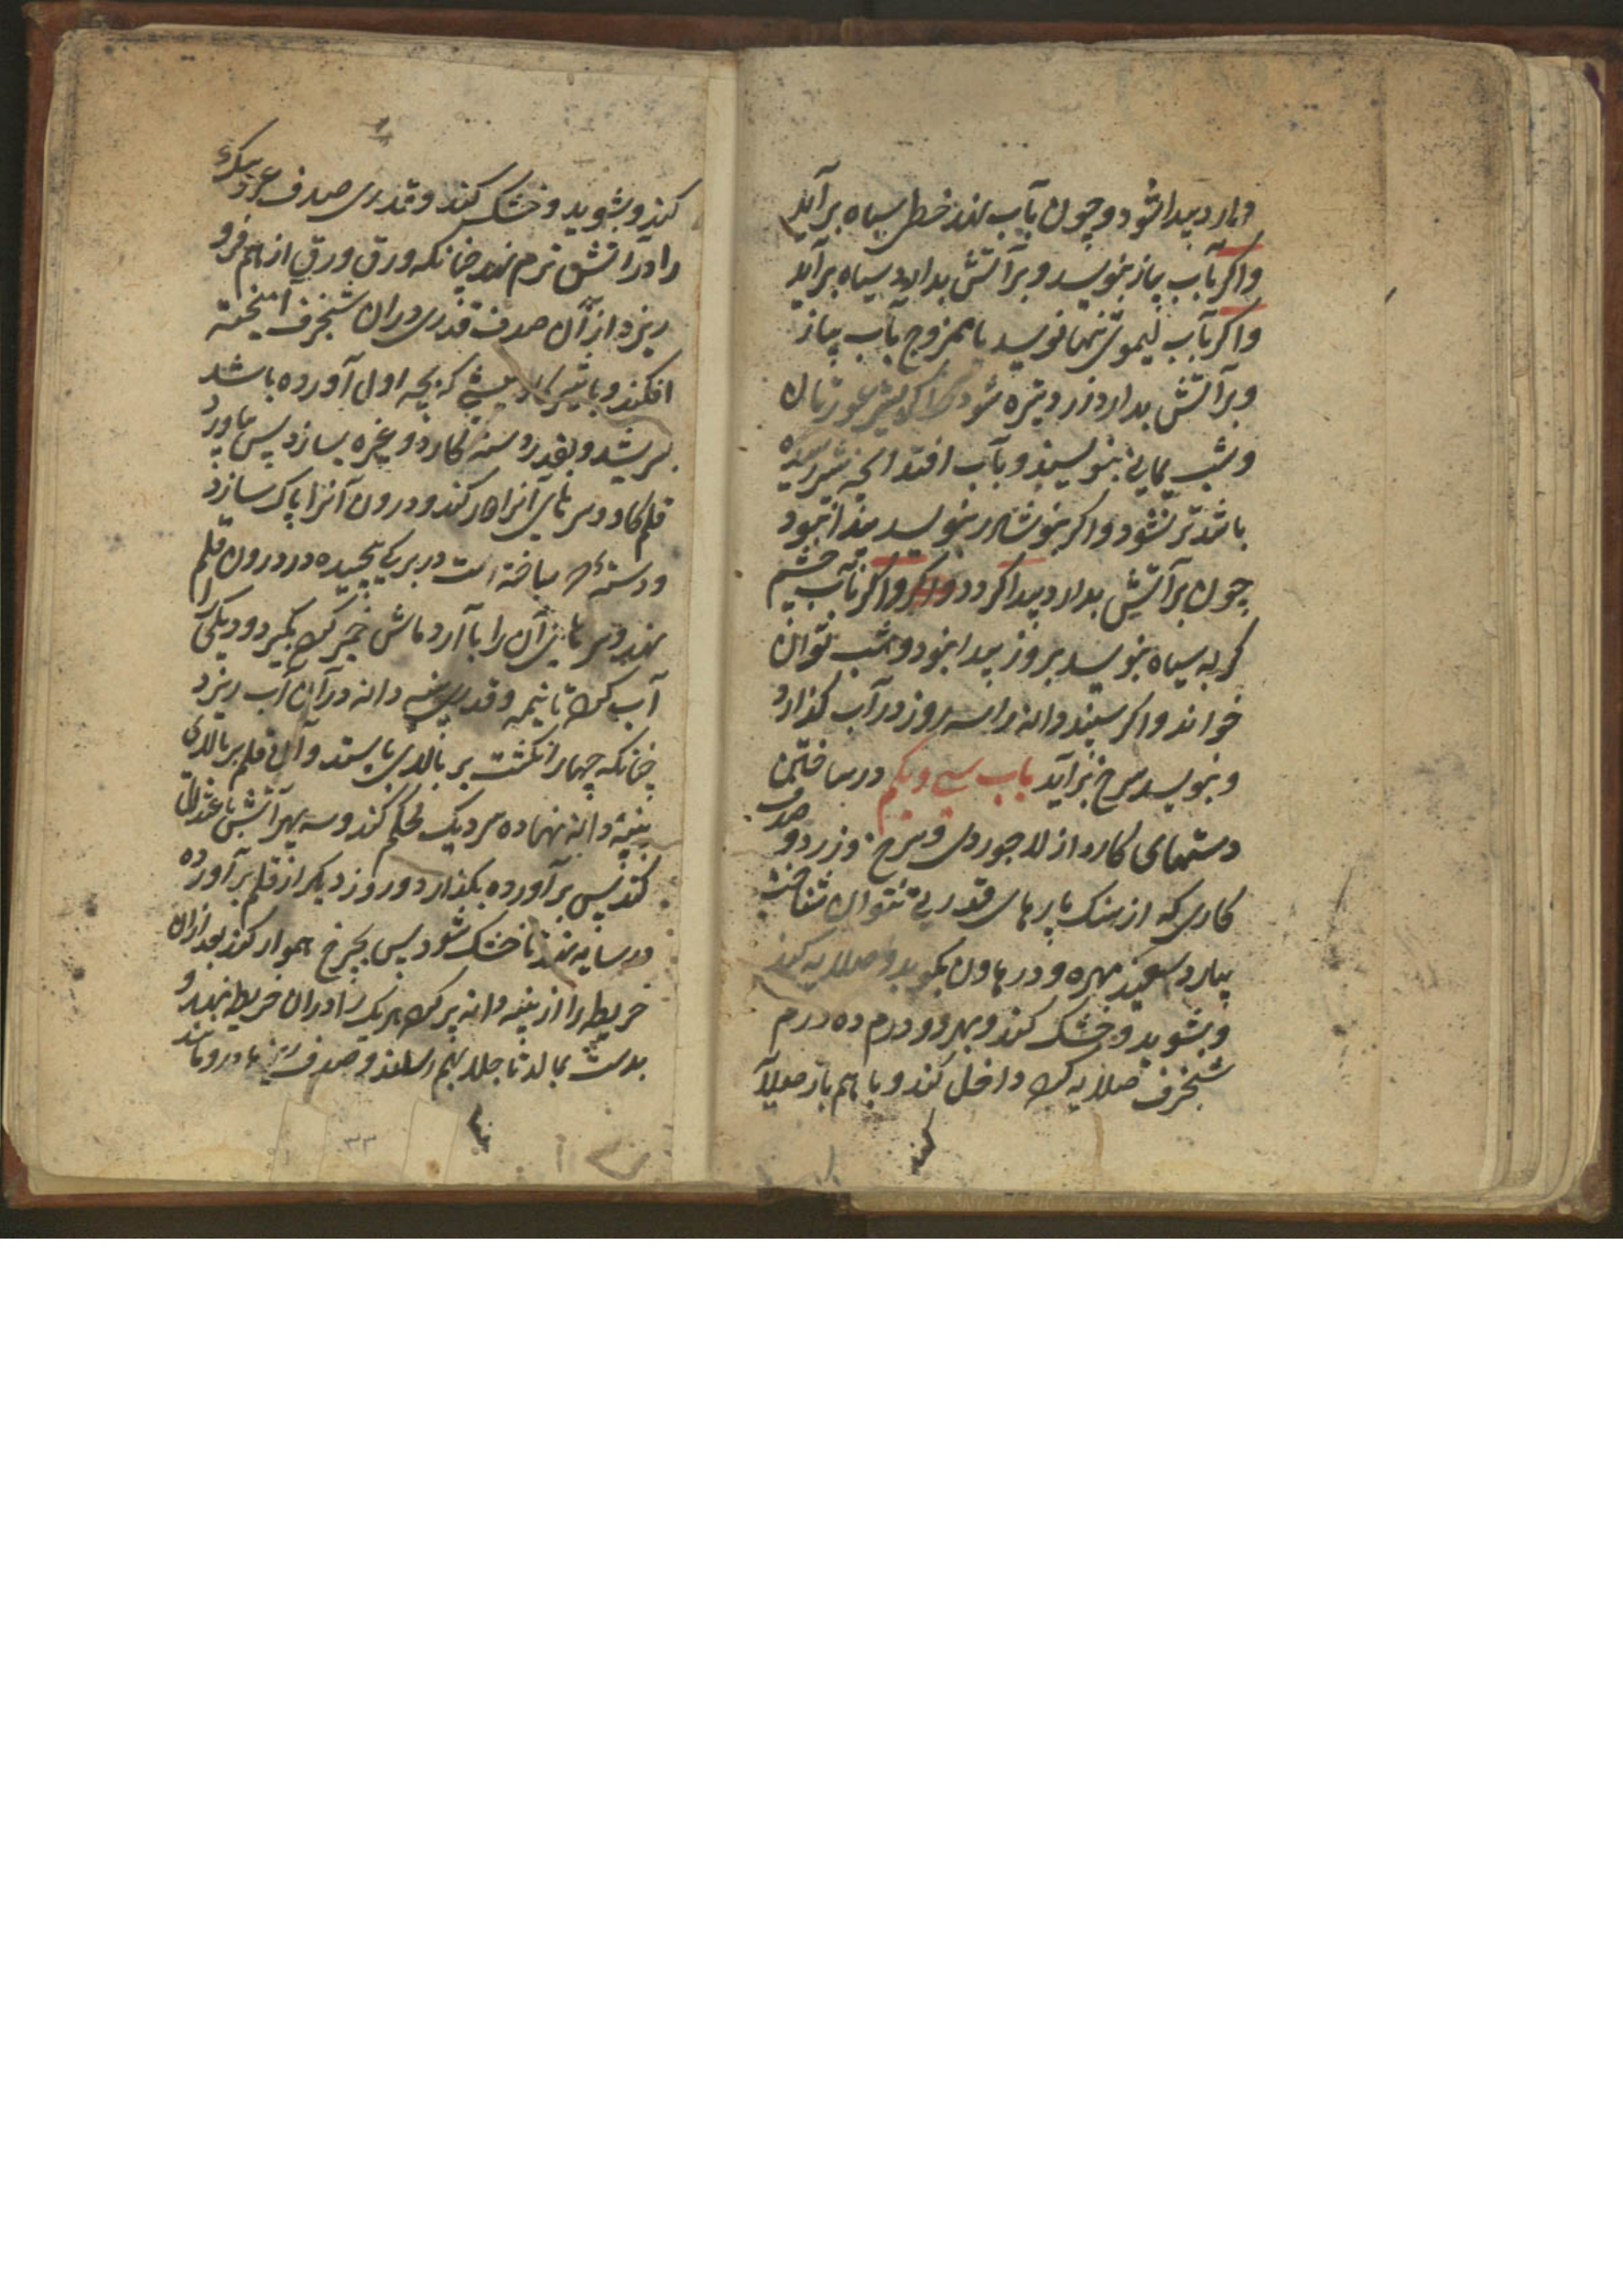 دارد پیدا شود و چون بآب نهند خطی سیاه برآید
واکر بآب پیاز بنویسد و برآتش بدارد سیاه برآید
واکر بآب لیموی تنها نویسد یا ممزوج بآب پیاز
و برآتش بدارد زرد و تیره شود و اکر بشیر عورتان
و شب یمانی بنویسند و بآب افتد آنچه بشیر
باشد تر نشود واکر بنوشادر بنویسد
چون برآتش بدارد پیدا کردد واکر بآب چشم
کربه سیاه بنویسد بروز پیدا نبود و شب توان
خواند واکر سپند دانه را سه روز در آب کذارد
و بنویسد سرخ برآید باب سی و یکم در ساختن
دستهای کارد از لاجوردی و سرخ و زرد و صدف
کاری که از سنک پارهای قدرتی نتوان شناخت
بیارد سفید مهره و در هاون بکوبد و صلایه کند
و بشوید و خشک کند و بهر دو درم ده درم
شنجرف صلایه کرده داخل کند و با هم باز صلایه
کند
کند و بشوید و خشک کند و قدری صدف
را در آتش نرم نهد چنانکه ورق ورق از هم فرو
ریزد از آن صدف قدری در آن شنجرف آمیخته
افکند و با شیر که بچه اول آورده باشد
بسریشد و بقدر دسته کارد و غیره بسازد پس بیاورد
قلم کاو و سرهای آنرا دور کند و درون آنرا پاک سازد
و دسته که ساخته است در بر پیچیده در درون قلم
نهد و سرهای آن را با آرد ماش خمیر کرده بکیرد و دیکی را
آب کرده تا نیمه و قدری پنبه دانه در آن آب ریزد
چنانکه چهار انکشت بر بالای بایستد و آن قلم بر بالای
پنبه دانه نهاده سر دیک محکم کند و سه پهر آتش باعتدال
کند پس برآورده بکذارد و روز دیکر از قلم برآورده
در سایه نهد تا خشک شود پس بچرخ هموار کند بعد ازان
خریطه را از پنبه دانه پر کرده هر یک را در آن خریطه نهد و
بدست بمالد تا جلا بهم رساند و صدف ریزها درو